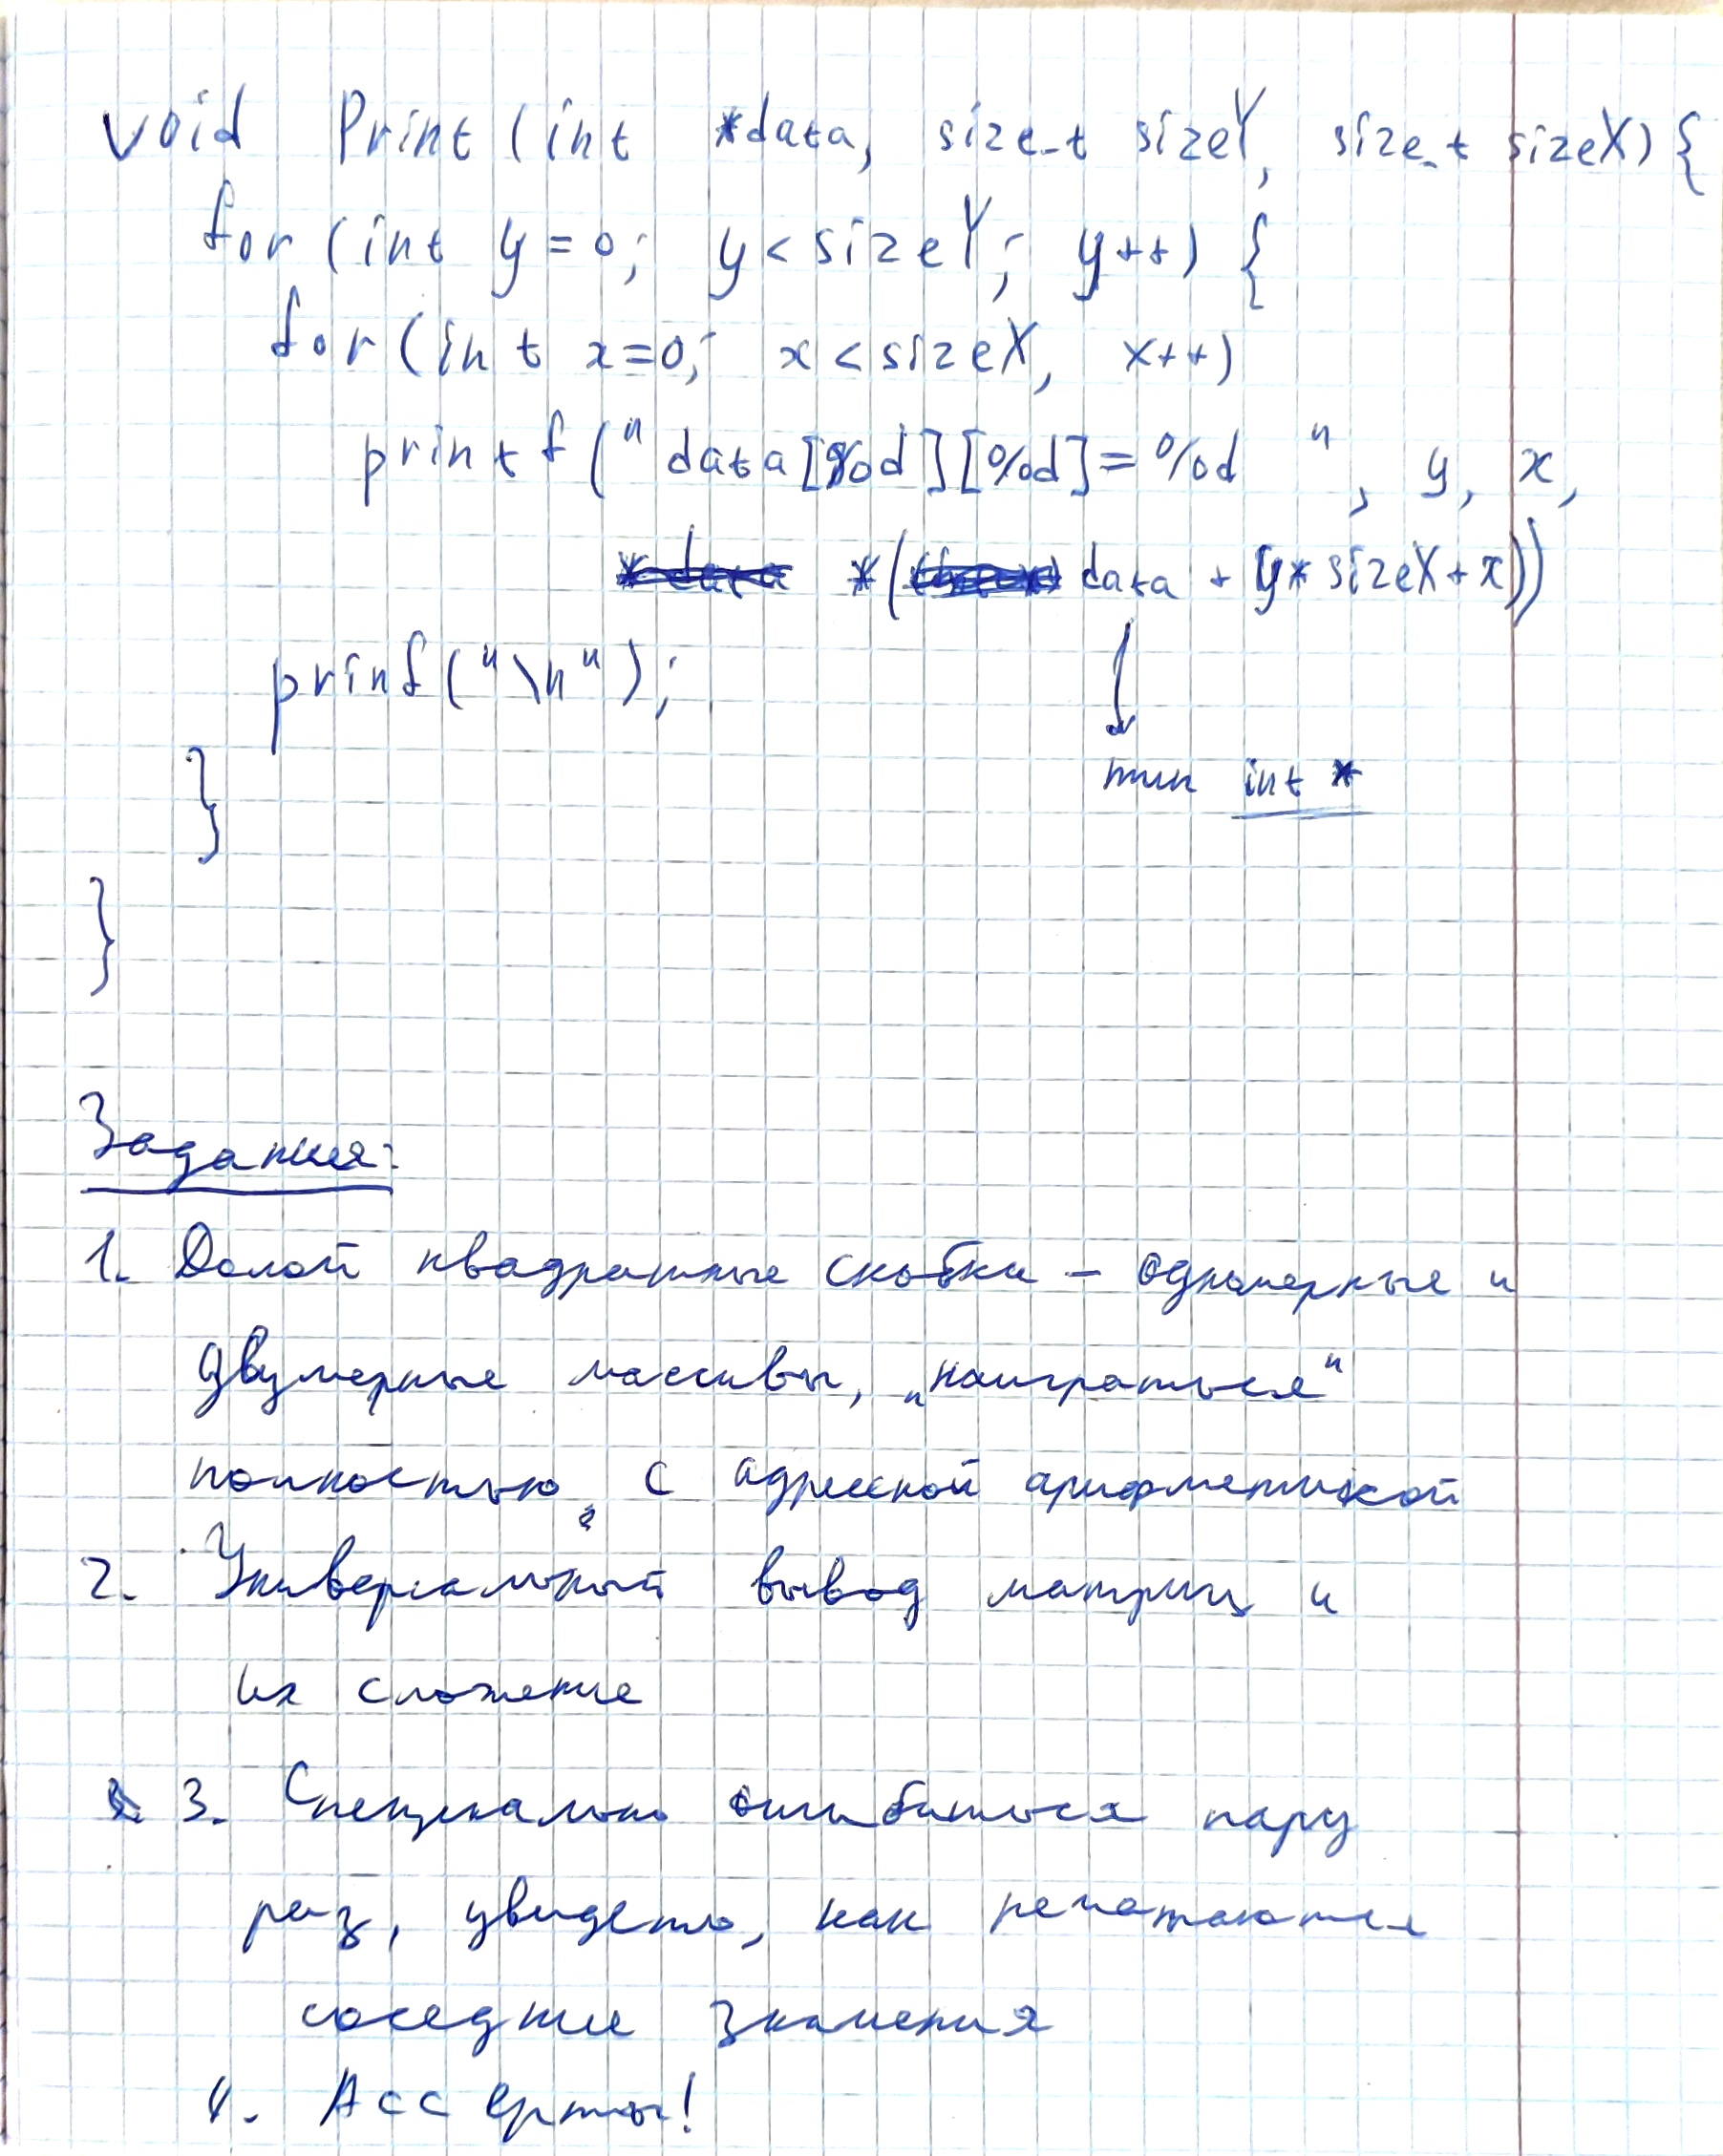 void Print (int *data, size_t sizeY, size_t sizeX) {
for (int y = 0; y < sizeY; y++) {
for (int x=0; x < sizeX, x++)
printf ("data[%d][%d]=%d ", y, x,
*data *( data + y* sizeX + x))
prinf ("\n");
тип int *
}
}
Задания:
1. Долой квадратные скобки – одномерные и
двумерные массивы, „наиграться"
полностью с адресной арифметикой
2. Универсальный вывод матриц и
их сложение
3. Специально ошибиться пару
раз, увидеть, как печатаются
соседние значения
4. Ассерты!